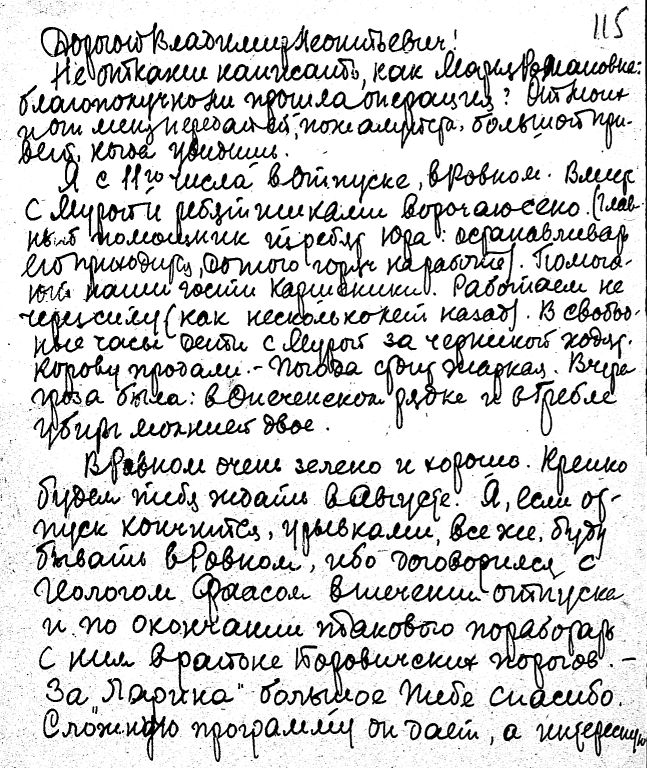 115
Дорогой Владимир Леонтьевич!
Не откажи написать, как Мария Романовна:
благополучно ли прошла операция? От моих
и от меня передай ей, пожалуйста, большой при-
вет, когда увидишь.
Я с 11го числа в отпуске, в Ровном. Вмес
с Мурой и ребятишками ворочаю сено. (Глав
ный помощник теребя Юра: останавливать
его приходится, до того горяч на работе). Помога-
ют наши гости Каршеники. Работаем не
через силу (как несколько лет назад). В свобод-
ные часы дети с Мурой за черникой ходят.
Корову продали. – Погода сразу жаркая. Вчера
гроза была: в Опеченском рядке и в Гребле
убиты молнией двое.
В Ровном очень зелено и хорошо. Крепко
будем тебя ждать в августе. Я, если от-
пуск кончится, урывками, все же, буду
бывать в Ровном, ибо договорился с
геологом Фаасом в течении отпуска
и по окончании такового поработать
с ним в районе Боровичских порогов. –
За "Ларина" большое тебе спасибо.
Сложную программу он дает, а интересную